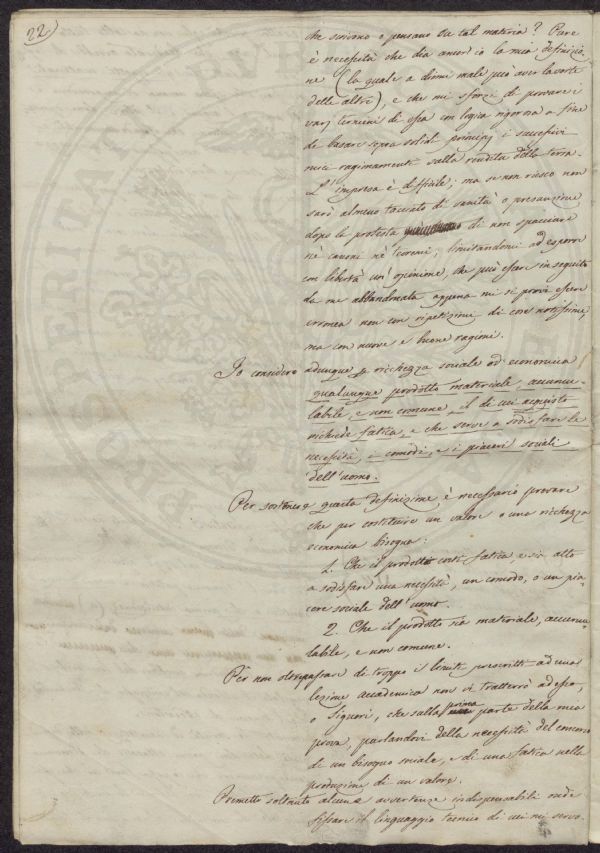 22
che scrivono o pensano su tal materia? Pure
è necessità che dia ancor'io la mia definizio
ne (la quale a dirne male può aver la sorte
delle altre), e che mi sforzi di provare i
varj termini di essa con logica rigorosa a fine
di basare sopra solidi principj i successivi
miei ragionamenti sulla rendita della terra.
L'impresa è difficile; ma se non riesco non
sarò almeno tacciato di vanità o presunzione
dopo la protesta di non spacciare
nè canoni nè teoremi, limitandomi ad esporre
con libertà un'opinione, che può essere in seguito
da me abbandonata appena mi si provi essere
erronea non con ripetizione di cose notissime,
ma con nuove e buone ragioni.
Io considero adunque p ricchezza sociale od economica
qualunque prodotto materiale, accumu-
labile, e non comune, il di cui acquisto
richiede fatica, e che serve a sodisfare le
necessità, i comodi, e i piaceri sociali
dell'uomo.
Per sostenere questa definizione è necessario provare
che per costituire un valore o una ricchezza
economica bisogna:
1. Che il prodotto costi fatica, e sia atto
a sodisfare una necessità, un comodo, o un pia
cere sociale dell'uomo.
2. Che il prodotto sia materiale, accumu-
labile, e non comune.
Per non oltrepassare di troppo i limiti prescritti ad una
lezione accademica non vi tratterrò adesso,
o Signori, che sulla prima parte della mia
prova, parlandovi della necessità del concorso
di un bisogno sociale, e di una fatica nella
produzione di un valore.
Premetto soltanto alcune avvertenze indispensabili onde
fissare il linguaggio tecnico di cui mi servo.